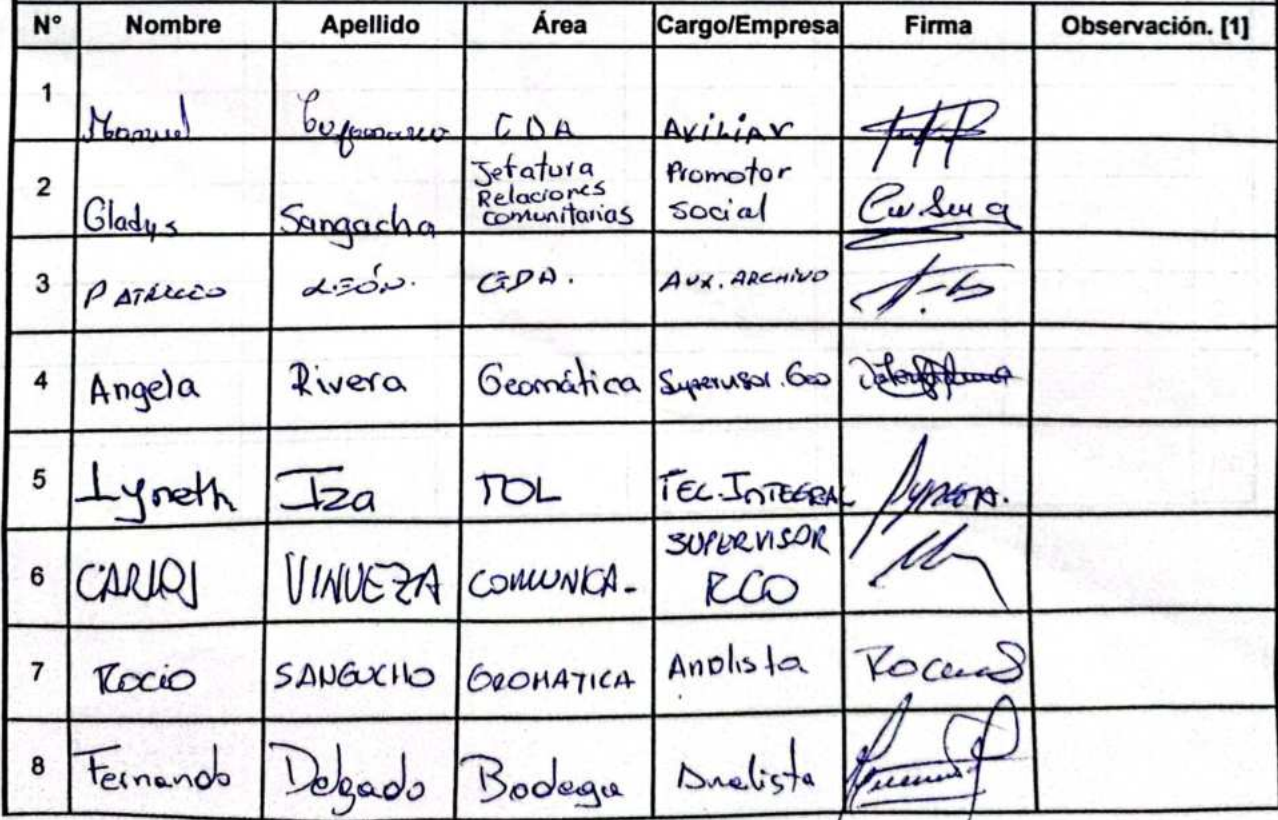 N° Nombre Apellido Área Cargo/Empresa Firma Observación. [1]
1 Manuel CDA Axiliar
2 Gladys Sangacha Jefatura Relaciones comunitarias Promotor Social
3 PATRICIO LEÓN. CDA. AUX. ARCHIVO
4 Angela Rivera Geomática Supervisor. Geo
5 Lyneth Iza TOL TEC. INTEGRAL
6 CARLOS VINUEZA COMUNICA. SUPERVISOR RCO
7 Rocio SANGUCHO GEOMATICA Analista
8 Fernando Delgado Bodega Analista